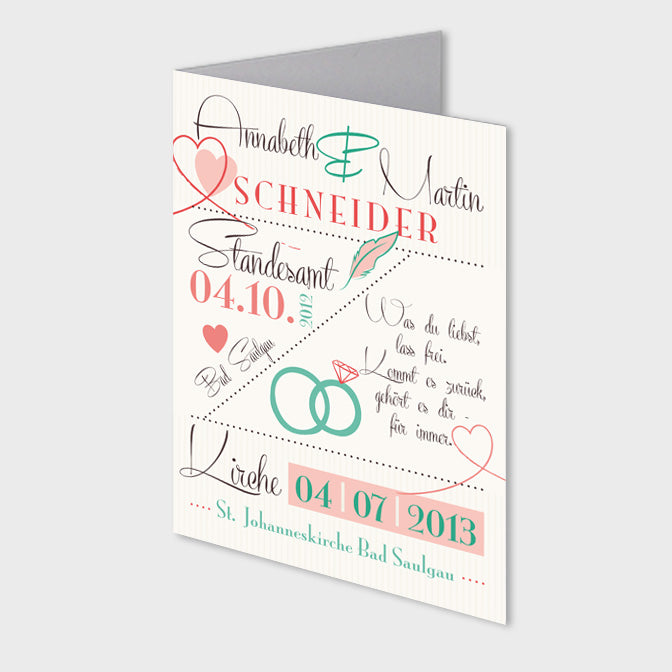 Annabeth & Martin
SCHNEIDER
Standesamt
04.10.
2012
Bad Saulgau
Was du liebst,
lass frei.
Kommt es zurück,
gehört es dir -
für immer.
Kirche
04 | 07 | 2013
.... St. Johanneskirche Bad Saulgau ....